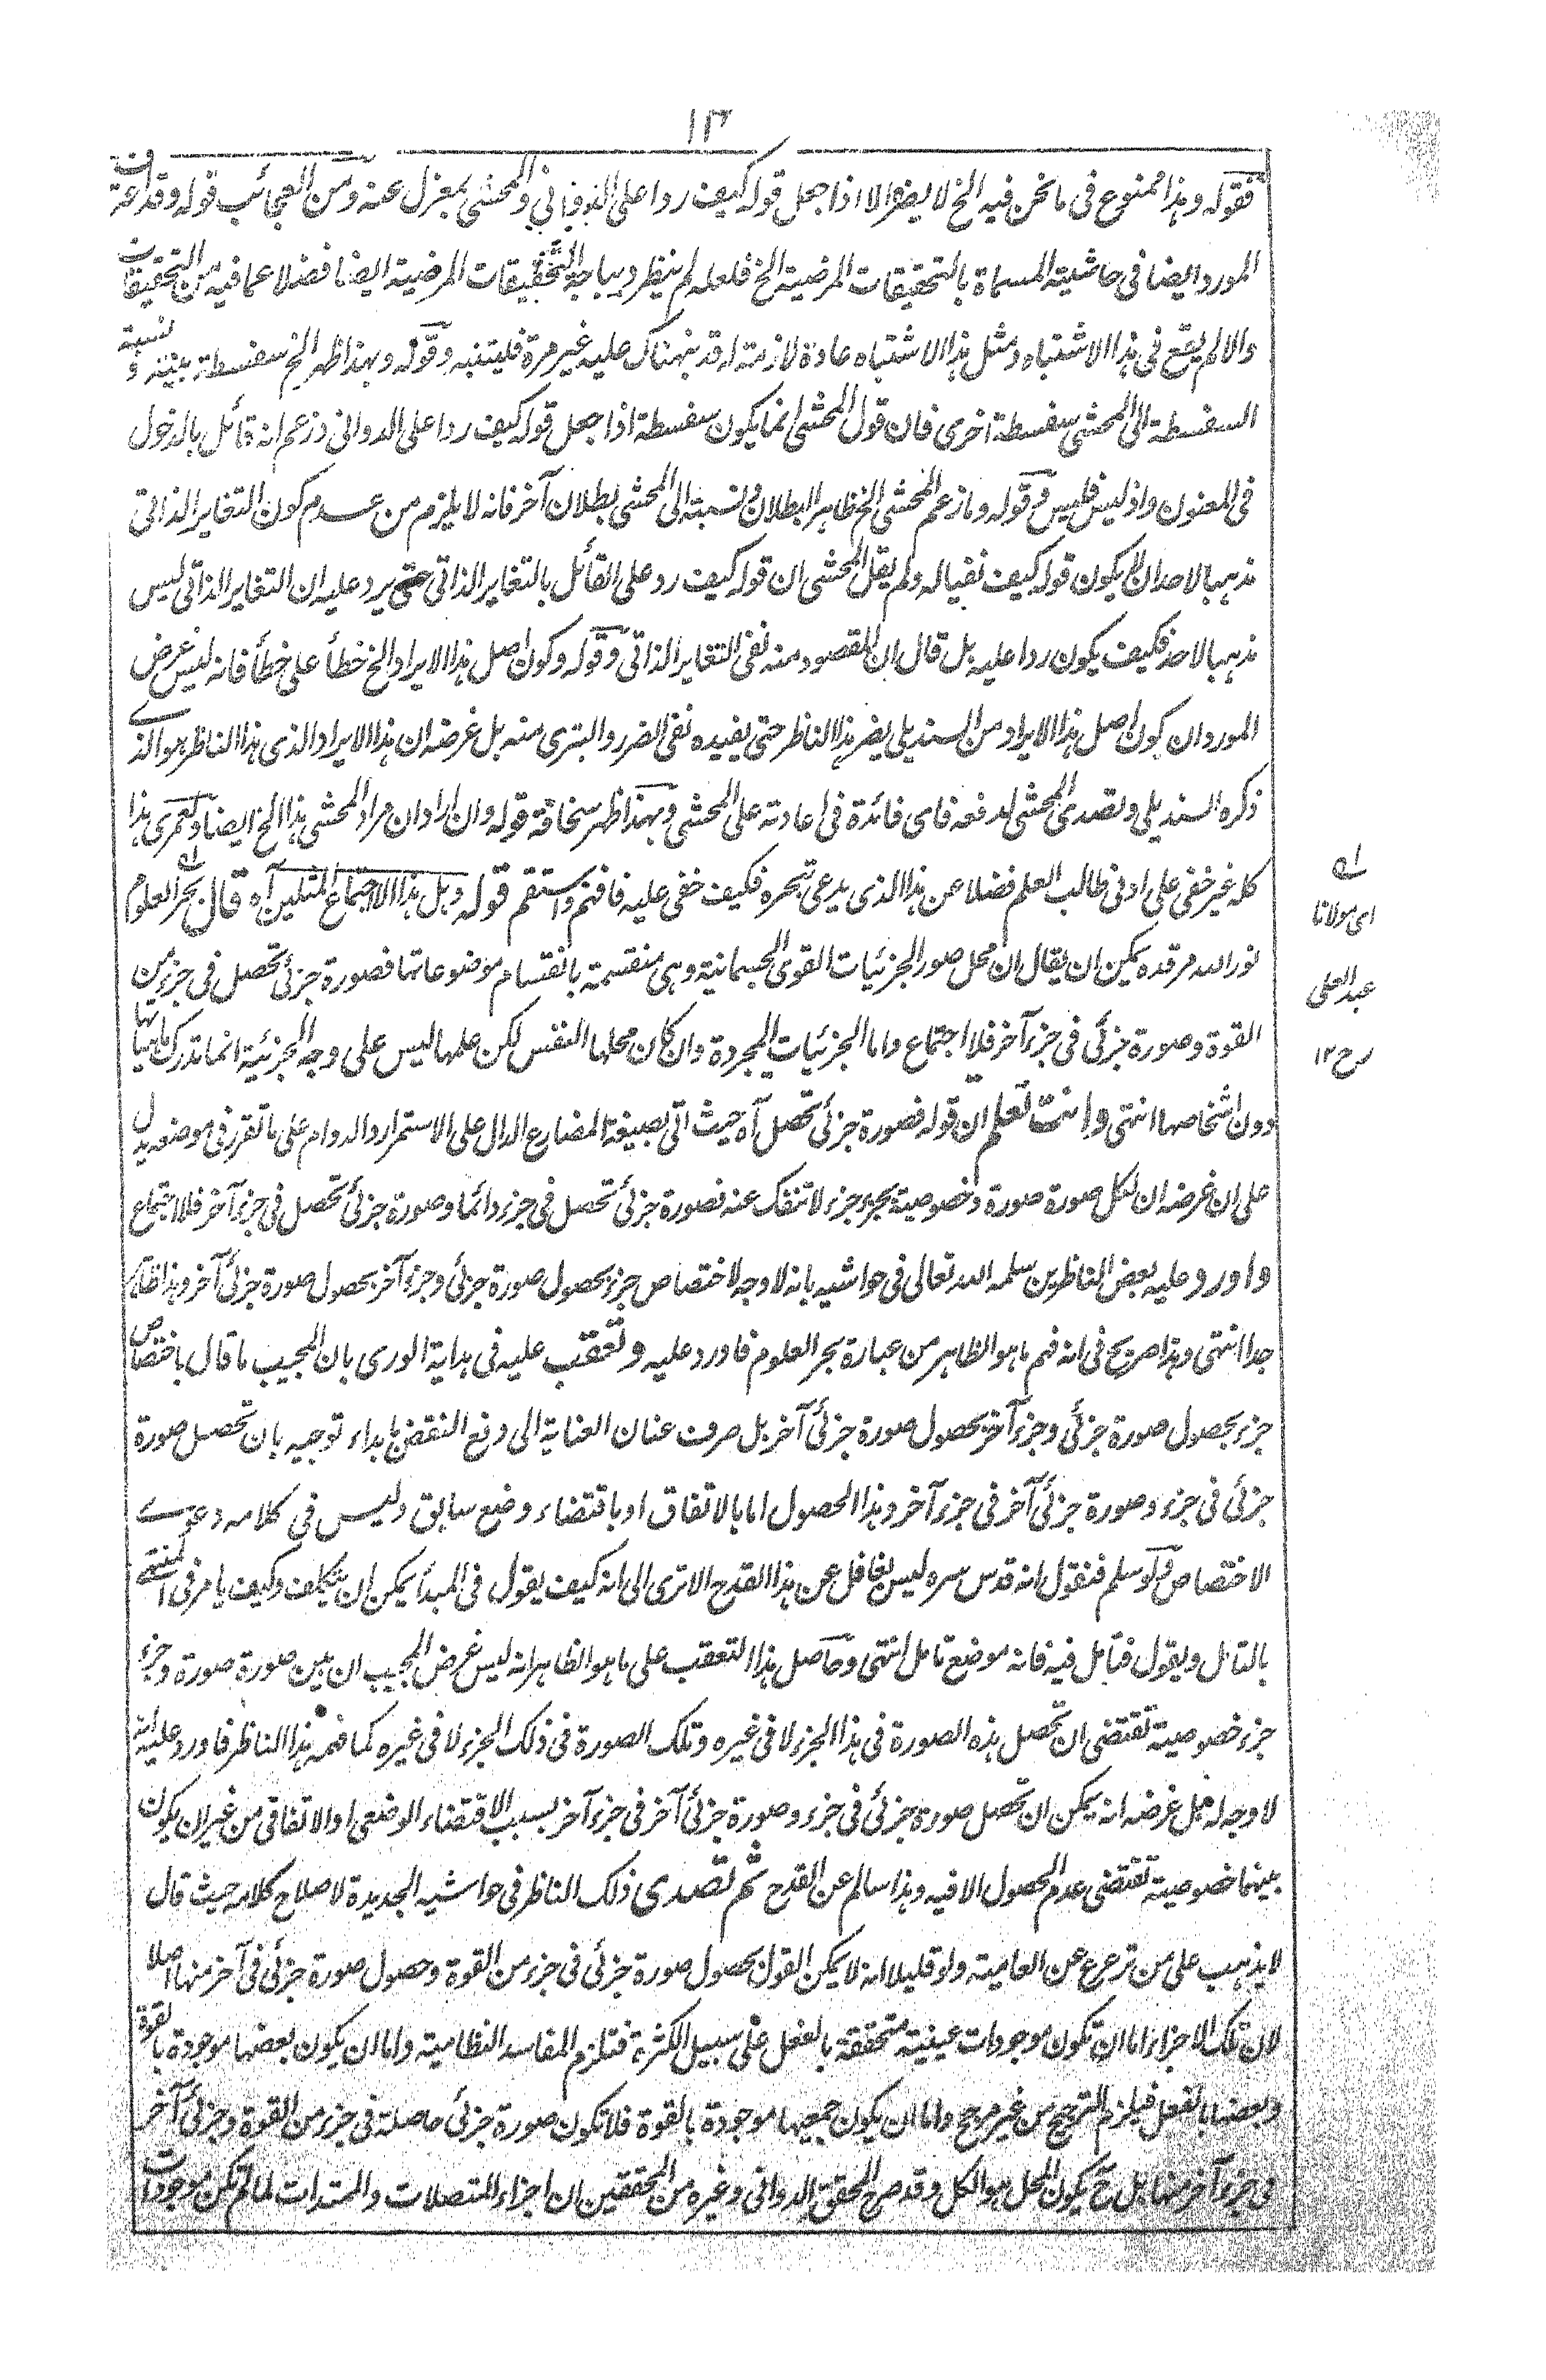 ١٣
فقوله وهذا ممنوع فى ما نحن فيه الخ لا يضر الا اذا جعل قوله كيف ردا على الدوانى والمحشى بمعزل عنه ومن العجائب قوله وقد اعترف
المورد ايضا فى حاشيته المسماة بالتحقيقات المرضية الخ فلعله لم ينظر ديباجة التحقيقات المرضية ايضا فضلا عما فيه من التحقيقات
والا لم يقع فى هذا الاشتباه ومثل هذا الاشتباه عادة لازمة له قد نبهناك عليه غير مرة فليتنبه وقوله وبهذا ظهر الخ سفسطة بينة ونسبة
السفسطة الى المحشى سفسطة اخرى فان قول المحشى انما يكون سفسطة اذا جعل قوله كيف ردا على الدوانى وزعم انه قائل بالدخول
فى المعنون واذ ليس فليس وقوله وما زعم المحشى الخ ظاهر البطلان ونسبته الى المحشى بطلان آخر فانه لا يلزم من عدم كون التغاير الذاتى
مذهبا لاحد ان لا يكون قوله كيف نفيا له ولم يقل المحشى ان قوله كيف رد على القائل بالتغاير الذاتى حتى يرد عليه ان التغاير الذاتى ليس
مذهبا لاحد فكيف يكون ردا عليه بل قال ان المقصود منه نفى التغاير الذاتى وقوله وكون اصل هذا الايراد الخ خطأ على خطأ فانه ليس غرض
المورد ان كون اصل هذا الايراد من السنديلى يضر هذا الناظر حتى يفيده نفى الضرر والتبرى منه بل غرضه ان هذا الايراد الذى هذا الناظر هو الذے
ذكره السنديلى وتصدى المحشى لدفعه فاى فائدة فى اعادته على المحشى وبهذا ظهر سخافة قوله وان اراد ان مراد المحشى هذا الخ ايضا ولعمرى هذا
كله غير خفى على ادنى طالب العلم فضلا عن هذا الذى يدعى تبحره فكيف خفى عليه فافهم واستقم قوله وهل هذا الا اجتماع المثلين آه قال بحر العلوم
نور الله مرقده يمكن ان يقال ان محل صور الجزئيات القوى الجسمانية وهى منقسمة بانقسام موضوعاتها فصورة جزئى تحصل فى جزء من
القوة وصورة جزئى فى جزء آخر فلا اجتماع واما الجزئيات المجردة وان كان محلها النفس لكن علمها ليس على وجه الجزئية انما تدرك ماهياتها
دون اشخاصها انتهى وانت تعلم ان قوله فصورة جزئى تحصل آه حيث اتى بصيغة المضارع الدال على الاستمرار والدوام على ما تقرر فى موضعه يدل
على ان غرضه ان لكل صورة صورة وخصوصية بجزء جزء لا تنفك عنه فصورة جزئى تحصل فى جزء دائما وصورة جزئى تحصل فى جزء آخر فلا اجتماع
واورد عليه بعض الناظرين سلمه الله تعالى فى حواشيه بانه لا وجه لاختصاص جزء بحصول صورة جزئى وجزء آخر بحصول صورة جزئى آخر وهذا ظاهر
جدا انتهى وهذا صريح فى انه فهم ما هو الظاهر من عبارة بحر العلوم فاورد عليه وتعقب عليه فى هداية الورى بان المجيب ما قال باختصاص
جزء بحصول صورة جزئى وجزء آخر بحصول صورة جزئى آخر بل صرف عنان العناية الى دفع النقض بابداء توجيه بان تحصل صورة
جزئى فى جزء وصورة جزئى آخر فى جزء آخر وهذا الحصول اما بالاتفاق او باقتضاء وضع سابق وليس فى كلامه دعوے
الاختصاص ولو سلم فنقول انه قدس سره ليس بغافل عن هذا القدح الا ترى الى انه كيف يقول فى المبدأ يمكن ان يتكلف وكيف يامر فى المنتهے
بالتامل ويقول فتامل فيه فانه موضع تامل انتهى وحاصل هذا التعقب على ما هو الظاهر انه ليس غرض المجيب ان بين صورة صورة وجزء
جزء خصوصية تقتضى ان تحصل هذه الصورة فى هذا الجزء لا فى غيره وتلك الصورة فى ذلك الجزء لا فى غيره كما فهمه هذا الناظر فاورد عليه انه
لا وجه له بل غرضه انه يمكن ان تحصل صورة جزئى فى جزء وصورة جزئى آخر فى جزء آخر بسبب الاقتضاء الوضعى او الاتفاقى من غير ان يكون
بينهما خصوصية تقتضى عدم الحصول الا فيه وهذا سالم عن القدح ثم تصدى ذلك الناظر فى حواشيه الجديدة لاصلاح كلامه حيث قال
لا يذهب على من ترعرع عن العامية ولو قليلا انه لا يمكن القول بحصول صورة جزئى فى جزء من القوة وحصول صورة جزئى فى آخر منها اصلا
لان تلك الاجزاء اما ان تكون موجودات عينية متحققة بالفعل على سبيل الكثرة فتلزم المفاسد النظامية واما ان يكون بعضها موجودة بالقوة
وبعضها بالفعل فيلزم الترجيح من غير مرجح واما ان يكون جميعها موجودة بالقوة فلا تكون صورة جزئى حاصلة فى جزء من القوة وجزئى آخر
فى جزء آخر منها بل ح يكون المحل هو الكل وقد صرح المحقق الدوانى وغيره من المحققين ان اجزاء المتصلات والممتدات لما لم تكن موجودات
اى مولانا
عبد العلى
رح ١٢